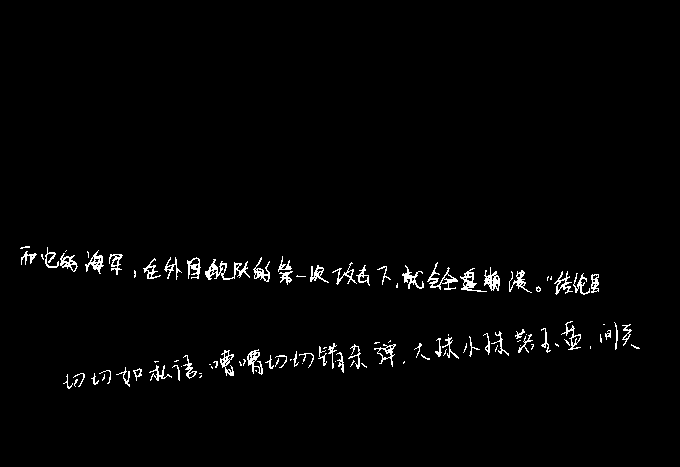 而它的海军,在外国舰队的第一次攻击下,就会全面崩溃。“结论是
切切如私语。嘈嘈切切错杂弹,大珠小珠落玉盘,间关